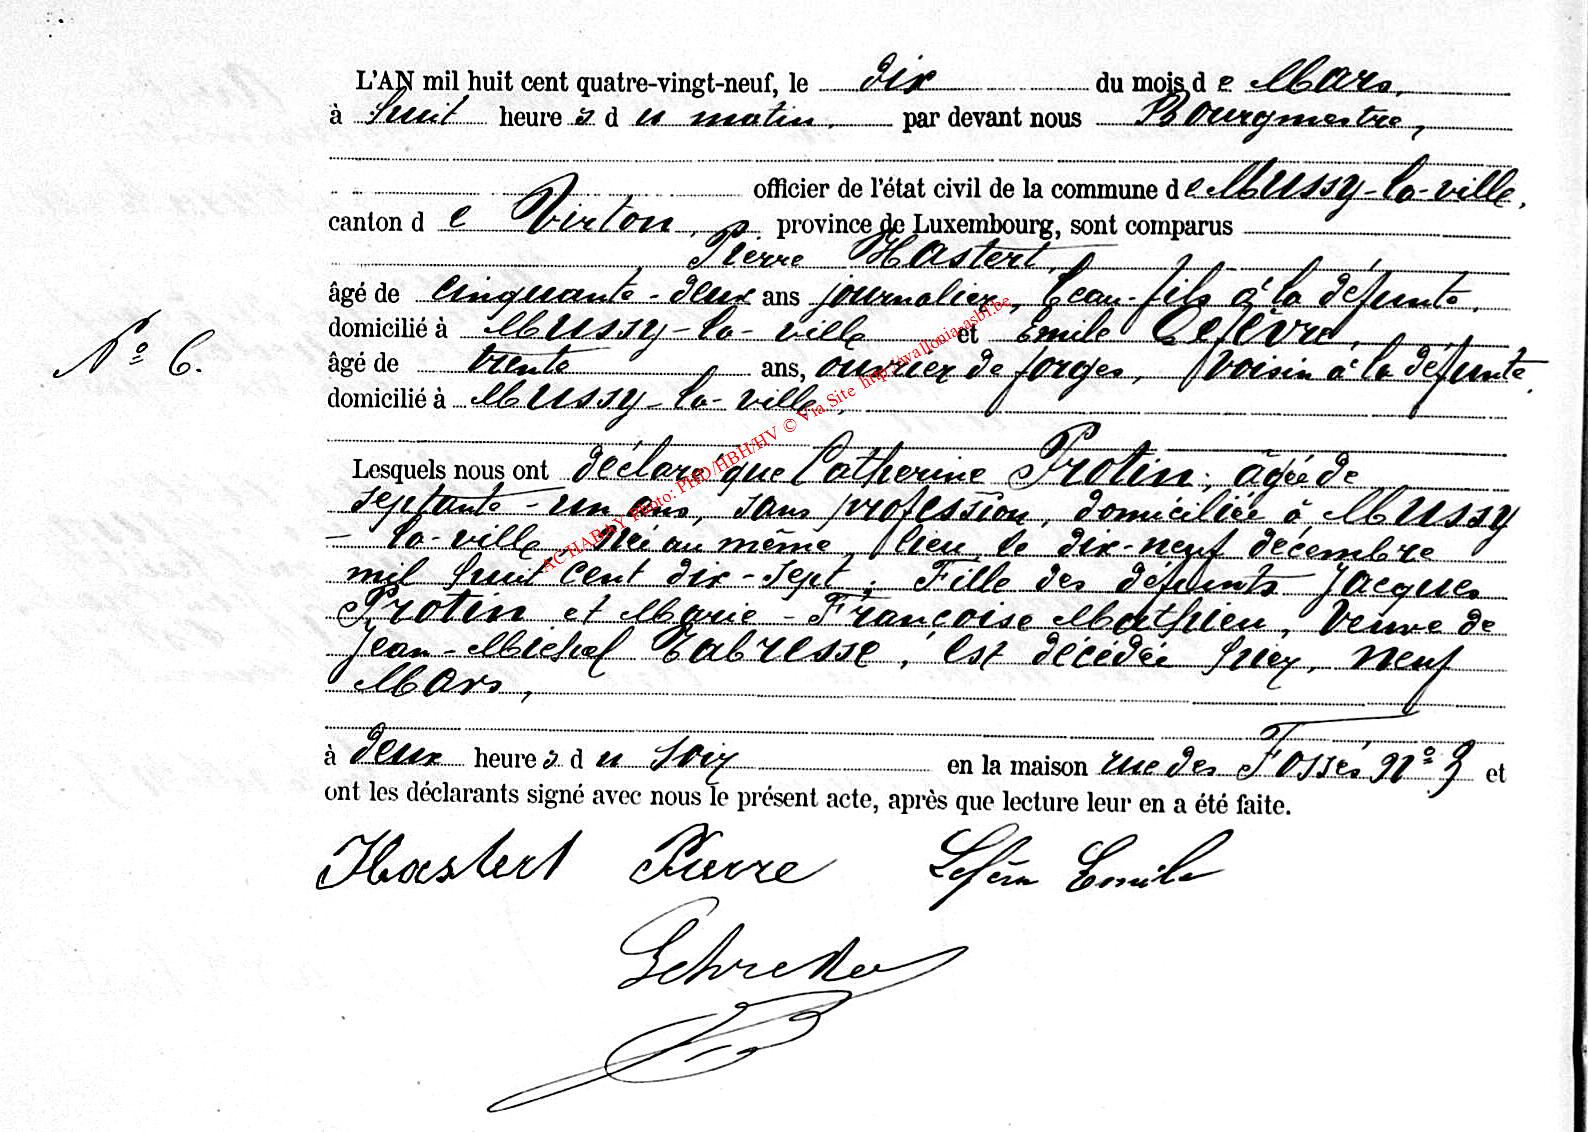 L'AN mil huit cent quatre-vingt-neuf, le dix du mois de Mars,
à huit heures du matin. par devant nous Bourgmestre,
officier de l'état civil de la commune de Mussy-la-ville,
canton de Virton, province de Luxembourg, sont comparus
Pierre Hastert,
âgé de cinquante-deux ans journalier, beau-fils à la défunte,
domicilié à Mussy-la-ville et Emile Lefèvre,
N° 6.
âgé de trente ans, ouvrier de forges, voisin à la défunte
domicilié à Mussy-la-ville.
Lesquels nous ont déclaré que Catherine Protin, âgée de
septante-un ans, sans profession, domiciliée à Mussy
-la-ville, née au même lieu, le dix-neuf décembre
mil huit cent dix-sept, Fille des défunts Jacques
Protin et Marie-Françoise Mathieu, Veuve de
Jean-Michel Labresse, est décédée hier, neuf
Mars,
à deux heures du soir en la maison rue des Fossés N° 3 et
ont les déclarants signé avec nous le présent acte, après que lecture leur en a été faite.
Hastert Pierre Lefèvre Emile
AC HABAY Photo: PHD/HBH/HV © Via Site http://wallonia-asbl.be